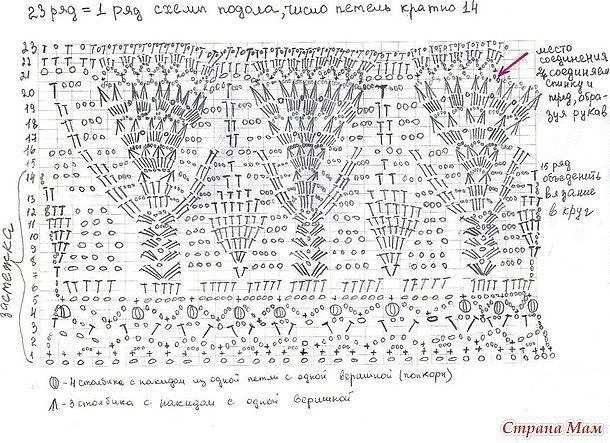 23 ряд = 1 ряд схемы подола, число петель кратно 14
место
соединения
соединяем
спинку и
перед, обра-
зуя рукав
15 ряд
объединить
вязание
в круг
застежка
23
22
21
20
19
18
17
16
15
14
13
12
11
10
9
8
7
6
5
4
3
2
1
- 4 столбика с накидом из одной петли с одной вершиной (попкорн)
- 3 столбика с накидом с одной вершиной
Страна Мам